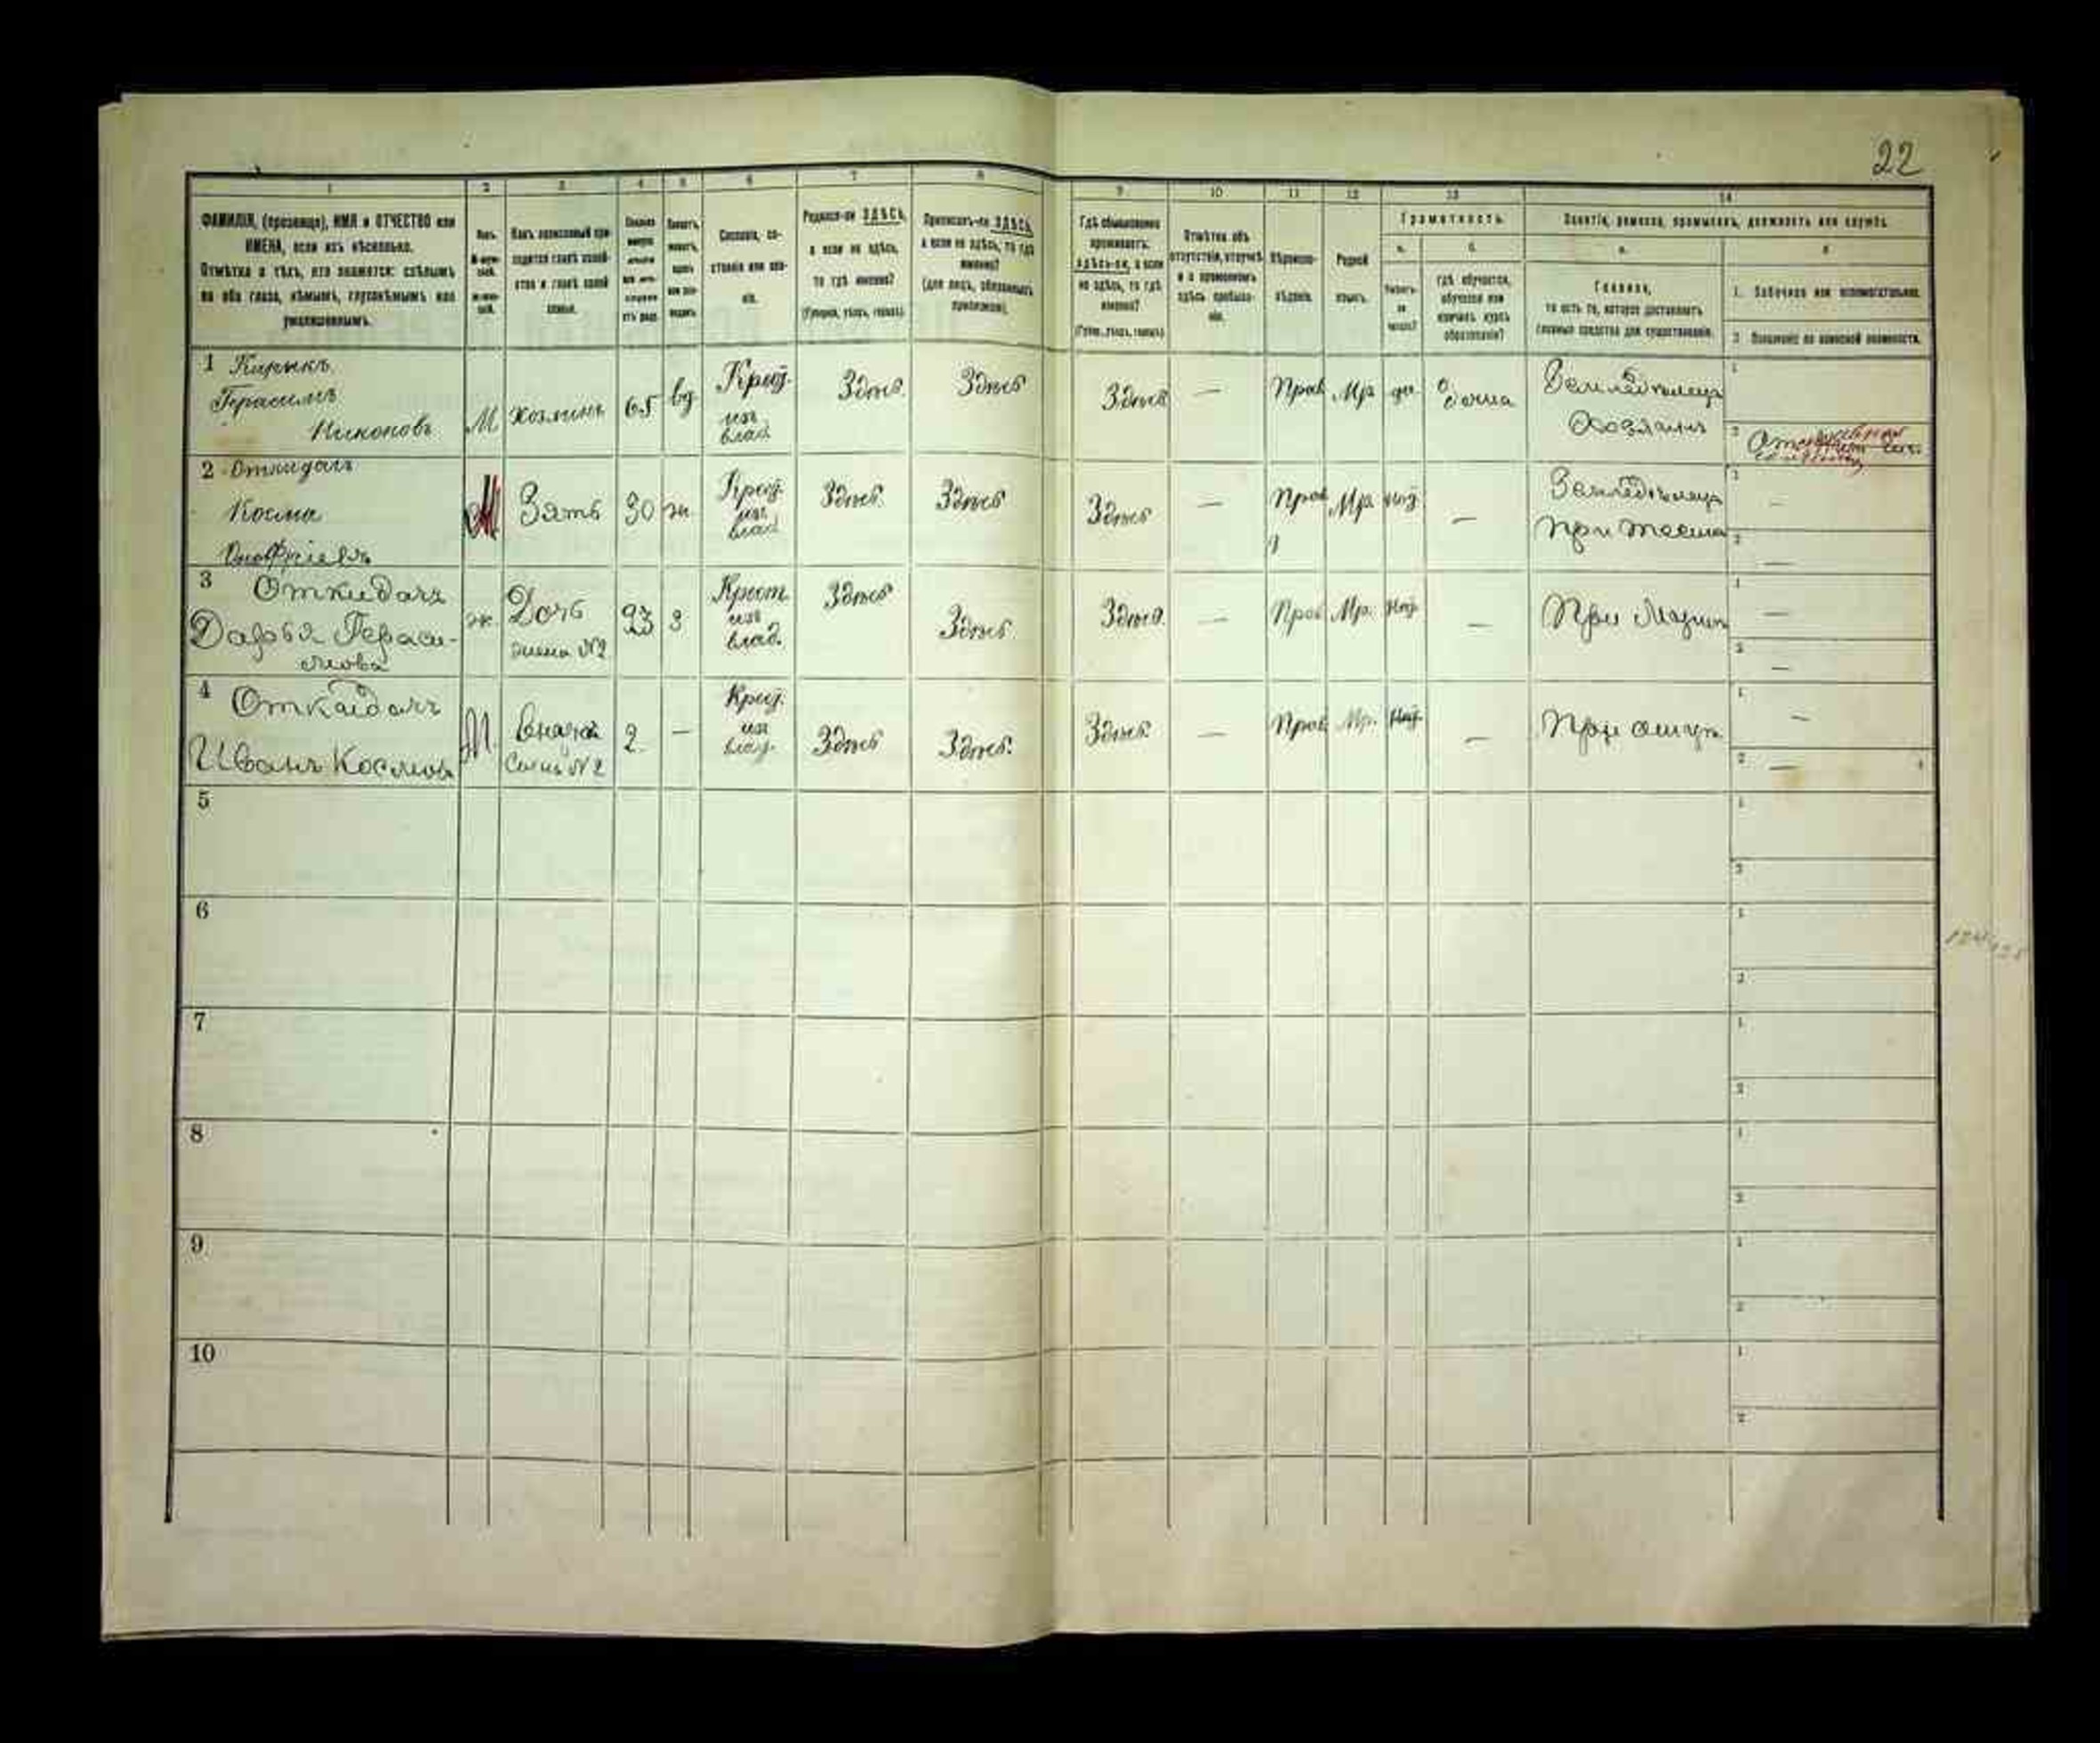 22
1 2 3 4 5 6 7 8 9 10 11 12 13 14
ФАМИЛІЯ, (прозвище), ИМЯ и ОТЧЕСТВО или
ИМЕНА, если ихъ нѣсколько.
Отмѣтка о тѣхъ, кто окажется: слѣпымъ
на оба глаза, нѣмымъ, глухонѣмымъ или
умалишеннымъ.
Сословіе, со-
стояніе или зва-
ніе.
Родился-ли ЗДѢСЬ,
а если не здѣсь,
то гдѣ именно?
(Губернія, уѣздъ, городъ).
Приписанъ-ли ЗДѢСЬ,
а если не здѣсь, то гдѣ
именно?
(для лицъ, обязанныхъ
припискою).
Гдѣ обыкновенно
проживаетъ:
здѣсь-ли, а если
не здѣсь, то гдѣ
именно?
(Губерн., уѣздъ, городъ).
Отмѣтка объ
отсутствіи, отлучкѣ
и о временномъ
здѣсь пребыва-
ніи.
Вѣроиспо-
вѣданіе.
Родной
языкъ.
Грамотность.
а.
б.
гдѣ обучается,
обучался или
кончилъ курсъ
образованія?
Занятіе, ремесло, промыселъ, должность или служба.
а.
Главное,
то есть то, которое доставляетъ
главныя средства для существованія.
1. Побочное или вспомогательное.
2. Положеніе по воинской повинности.
1 Кирикъ
Герасимъ
Никоновъ
М хозяинъ 65 вд Крест. изъ влад. Здѣсь Здѣсь Здѣсь — Прав Мр да дома Земледѣлецъ Хозяинъ
2 Откидачъ
Косма
Онофріевъ
М Зять 30 ж Крест. изъ влад. Здѣсь Здѣсь Здѣсь — Прав Мр. нѣт — Земледѣлецъ При тестѣ
3 Откидачъ
Дарья Гераси-
мова
ж. Дочь жена №2 23 з Крест изъ влад. Здѣсь Здѣсь Здѣсь — Прав Мр. нѣт — При мужѣ
4 Откидачъ
Иванъ Космовъ
М. внукъ Сынъ №2 2 — Крест. изъ влад. Здѣсь Здѣсь. Здѣсь — Прав Мр. нѣт — При отцѣ
5
6
7
8
9
10